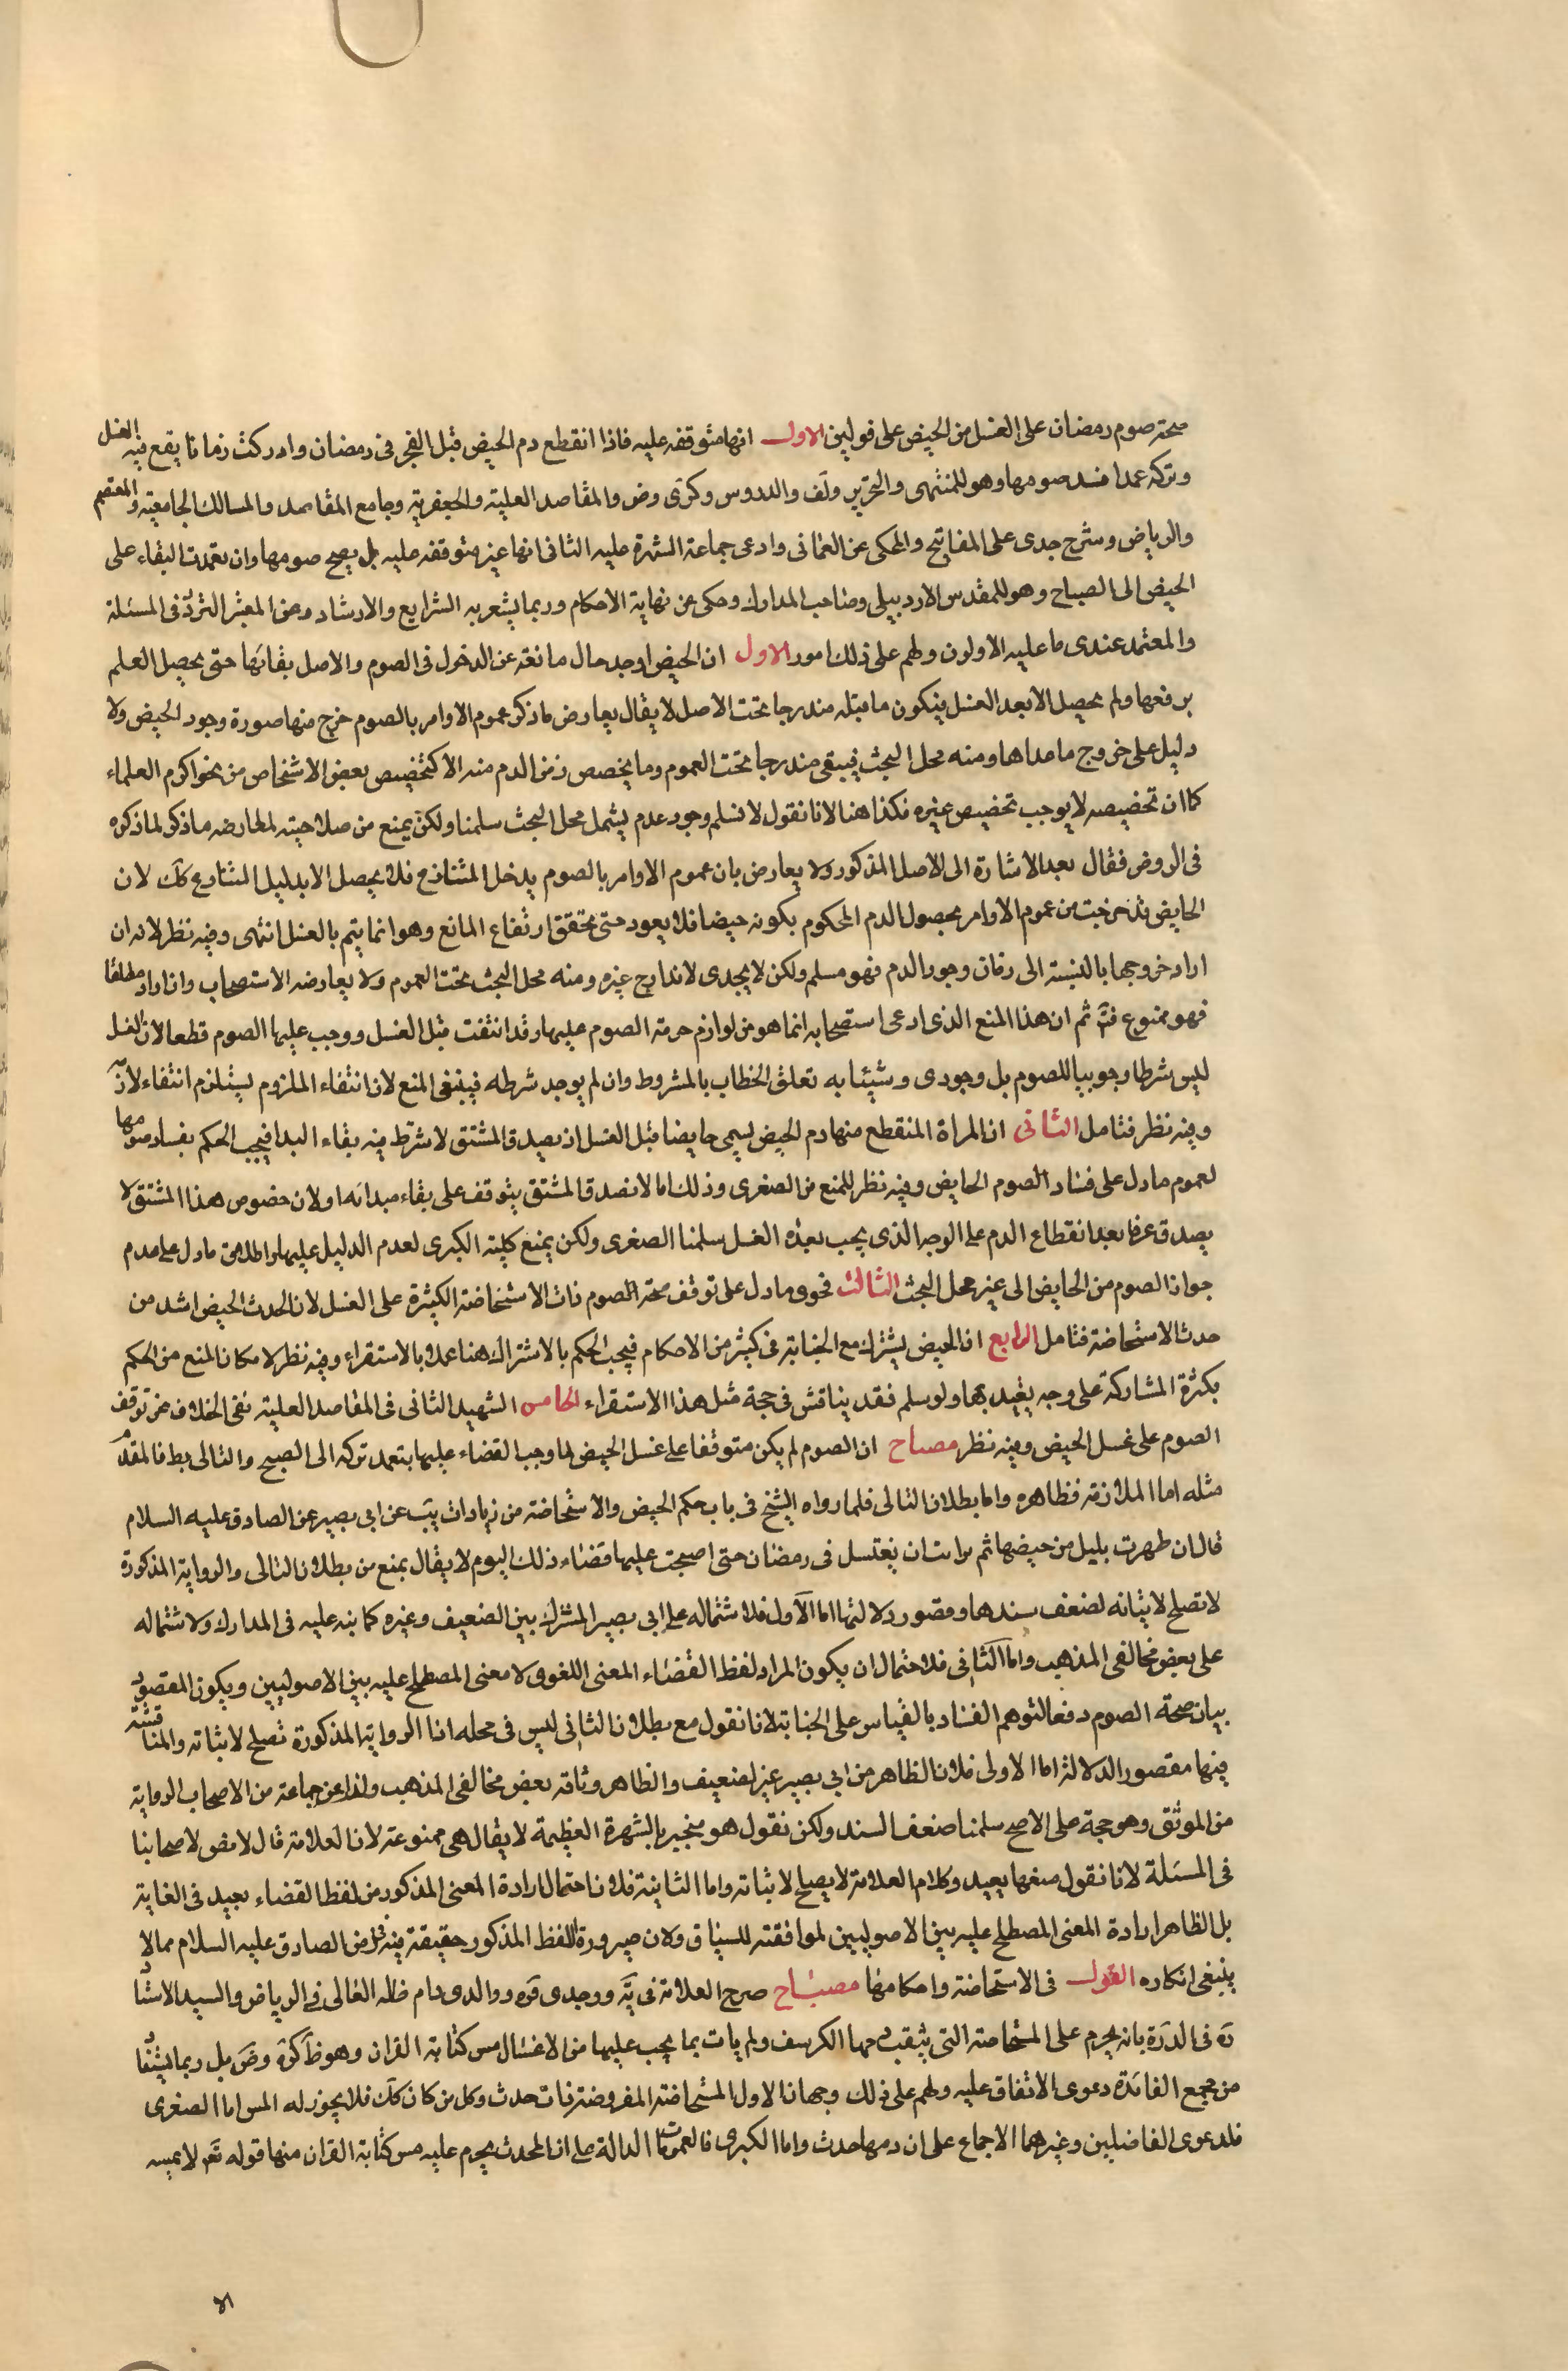 صحة صوم رمضان على الغسل من الحيض على قولين الاول انها متوقفه عليه فاذا انقطع دم الحيض قبل الفجر فى رمضان وادركت زمانا يقع فيه الغسل
وتركه عمدا فسد صومها وهو للمنتهى والتحرير ولف والدروس وكرى وض والمقاصد العلية والجعفرية وجامع المقاصد والمسالك الجامعية والمعتصم
والرياض وشرح جدى على المفاتيح والمحكى عن العمانى وادعى جماعة الشهرة عليه الثانى انها غير متوقفه عليه بل يصح صومها وان تعمدت البقاء على
الحيض الى الصباح وهو للمقدس الاردبيلى وصاحب المدارك وحكى عن نهاية الاحكام وربما يشعر به الشرايع والارشاد وعن المعتبر التردد فى المسئلة
والمعتمد عندى ما عليه الاولون ولهم على ذلك امور الاول ان الحيض اوجد حال مانعة عن الدخول فى الصوم والاصل بقائها حتى يحصل العلم
برفعها ولم يحصل الا بعد الغسل فيكون ما قبله مندرجا تحت الاصل لا يقال يعارض ما ذكر عموم الاوامر بالصوم خرج منها صورة وجود الحيض ولا
دليل على خروج ما عداها ومنه محل البحث فيبقى مندرجا تحت العموم وما يخصص زمن الدم منه الا كتخصيص بعض الاشخاص من نحو اكرم العلماء
كما ان تخصيصه لا يوجب تخصيص غيره فكذا هنا لانا نقول لا نسلم وجود عدم يشمل محل البحث سلمنا ولكن يمنع من صلاحيته لمعارضه ما ذكر لما ذكره
فى الروض فقال بعد الاشارة الى الاصل المذكور ولا يعارض بان عموم الاوامر بالصوم يدخل المتنازع فلا يحصل الا بدليل الشارع كك لان
الحايض قد خرجت من عموم الاوامر بحصول الدم المحكوم بكونه حيضا فلا يعود حتى تحقق ارتفاع المانع وهو انما يتم بالغسل انتهى وفيه نظر لانه ان
اراد خروجها بالنسبة الى زمان وجود الدم فهو مسلم ولكن لا يجدى لاندارج غيره ومنه محل البحث تحت العموم ولا يعارضه الاستصحاب وان اراد مطلقا
فهو ممنوع فتم ثم ان هذا المنع الذى ادعى استصحابه انما هو من لوازم حرمة الصوم عليها وقد انتفت قبل الغسل ووجب عليها الصوم قطعا لان الغسل
ليس شرطا وجوبيا للصوم بل وجودى وشيئا به تعلق الخطاب بالمشروط وان لم يوجد شرطه فينبغى المنع لان انتفاء الملزوم يستلزم انتفاء لازمه
وفيه نظر فتامل الثانى ان المراة المنقطع منها دم الحيض يسمى حايضا قبل الغسل اذ يصدق المشتق لا شرتط فيه بقاء البدا فيجب الحكم بفساد صومها
لعموم ما دل على فساد الصوم الحايض وفيه نظر للمنع من الصغرى وذلك اما لان صدق المشتق يتوقف على بقاء مبدائه او لان خصوص هذا المشتق لا
يصدق عرفا بعد انقطاع الدم على الوجه الذى يجب بعده الغسل سلمنا الصغرى ولكن يمنع كلية الكبرى لعدم الدليل عليها واطلاق ما دل على عدم
جواز الصوم من الحايض الى غير محل البحث الثالث فحوى ما دل على توقف صحة الصوم ذات الاستحاضة الكثيرة على الغسل لان الحدث الحيض اشد من
حدث الاستحاضة فتامل الرابع ان الحيض يشترك مع الجنابة فى كثير من الاحكام فيجب الحكم بالاشتراك هنا عملا بالاستقراء وفيه نظر لامكان المنع من الحكم
بكثرة المشاركة على وجه يفيد بها ولو سلم فقد يناقش فى حجة مثل هذا الاستقراء الخامس الشهيد الثانى فى المقاصد العلية نفى الخلاف عن توقف
الصوم على غسل الحيض وفيه نظر مصباح ان الصوم لم يكن متوقفا على غسل الحيض لما وجب القضاء عليها بتعمد تركه الى الصبح والتالى بط فالمقدم
مثله اما الملازمة فظاهره واما بطلان التالى فلما رواه الشيخ فى باب حكم الحيض والاستحاضة من زيادات يب عن ابى بصير عن الصادق عليه السلام
قال ان طهرت بليل من حيضها ثم توانت ان يغتسل فى رمضان حتى اصبحت عليها قضاء ذلك اليوم لا يقال يمنع من بطلان التالى والرواية المذكورة
لا تصلح لاثباته لضعف سندها وقصور دلالتها اما الاول فلاشتماله على ابى بصير المشترك بين الضعيف وغيره كما نبه عليه فى المدارك ولاشتماله
على بعض مخالفى المذهب واما الثانى فلاحتمال ان يكون المراد لفظ القضاء المعنى اللغوى لا معنى المصطلح عليه بين الاصوليين ويكون المقصود
بيان صحة الصوم دفعا لتوهم الفساد بالقياس على الجنابة لانا نقول مع بطلان الثانى ليس فى محله اذا الرواية المذكورة تصلح لاثباته والمناقشة
فيها مقصور الدلالة اما الاولى فلان الظاهر من ابى بصير غير لضعيف والظاهر وثاقه بعض مخالفى المذهب ولذا عن جماعة من الاصحاب الرواية
من الموثق وهو حجة على الاصح سلمنا ضعف السند ولكن نقول هو منجبر بالشهرة العظيمة لا يقال هى ممنوعة لان العلامة قال لا نص لاصحابنا
فى المسئلة لانا نقول منعها بعيد وكلام العلامة لا يصلح لاثباته واما الثانية فلان احتمال ارادة المعنى المذكور من لفظ القضاء بعيد فى الغاية
بل الظاهر ارادة المعنى المصطلح عليه بين الاصوليين لموافقته للسياق ولان صيرورة اللفظ المذكور حقيقة فيه فى زمن الصادق عليه السلام مما لا
ينبغى انكاره القول فى الاستحاضة واحكامها مصباح صرح العلامة فى ية ووجدى قره ووالدى دام ظله العالى فى الرياض والسيد الاستاد
ره فى الدرة بانه يحرم على المستحاضة التى يثقب دمها الكرسف ولم يات بما يجب عليها من الاغسال مس كتابة القران وهو ظ كره وض بل ربما يستفاد
من مجمع الفائدة دعوى الاتفاق عليه ولهم على ذلك وجهان الاول المستحاضة المفروضة ذات حدث وكل من كان كك فلا يجوز له المس اما الصغرى
فلدعوى الفاضلين وغيرهما الاجماع على ان دمها حدث واما الكبرى فالعمومات الدالة على ان المحدث يحرم عليه مس كتابة القران منها قوله تع لا يمسه
الا